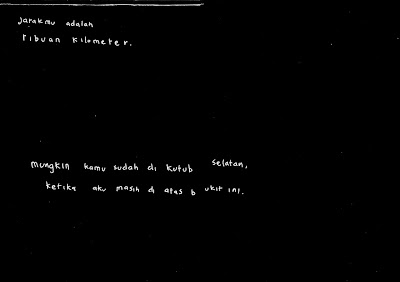 Jarakmu adalah
ribuan kilometer.
mungkin kamu sudah di kutub selatan,
ketika aku masih di atas bukit ini.